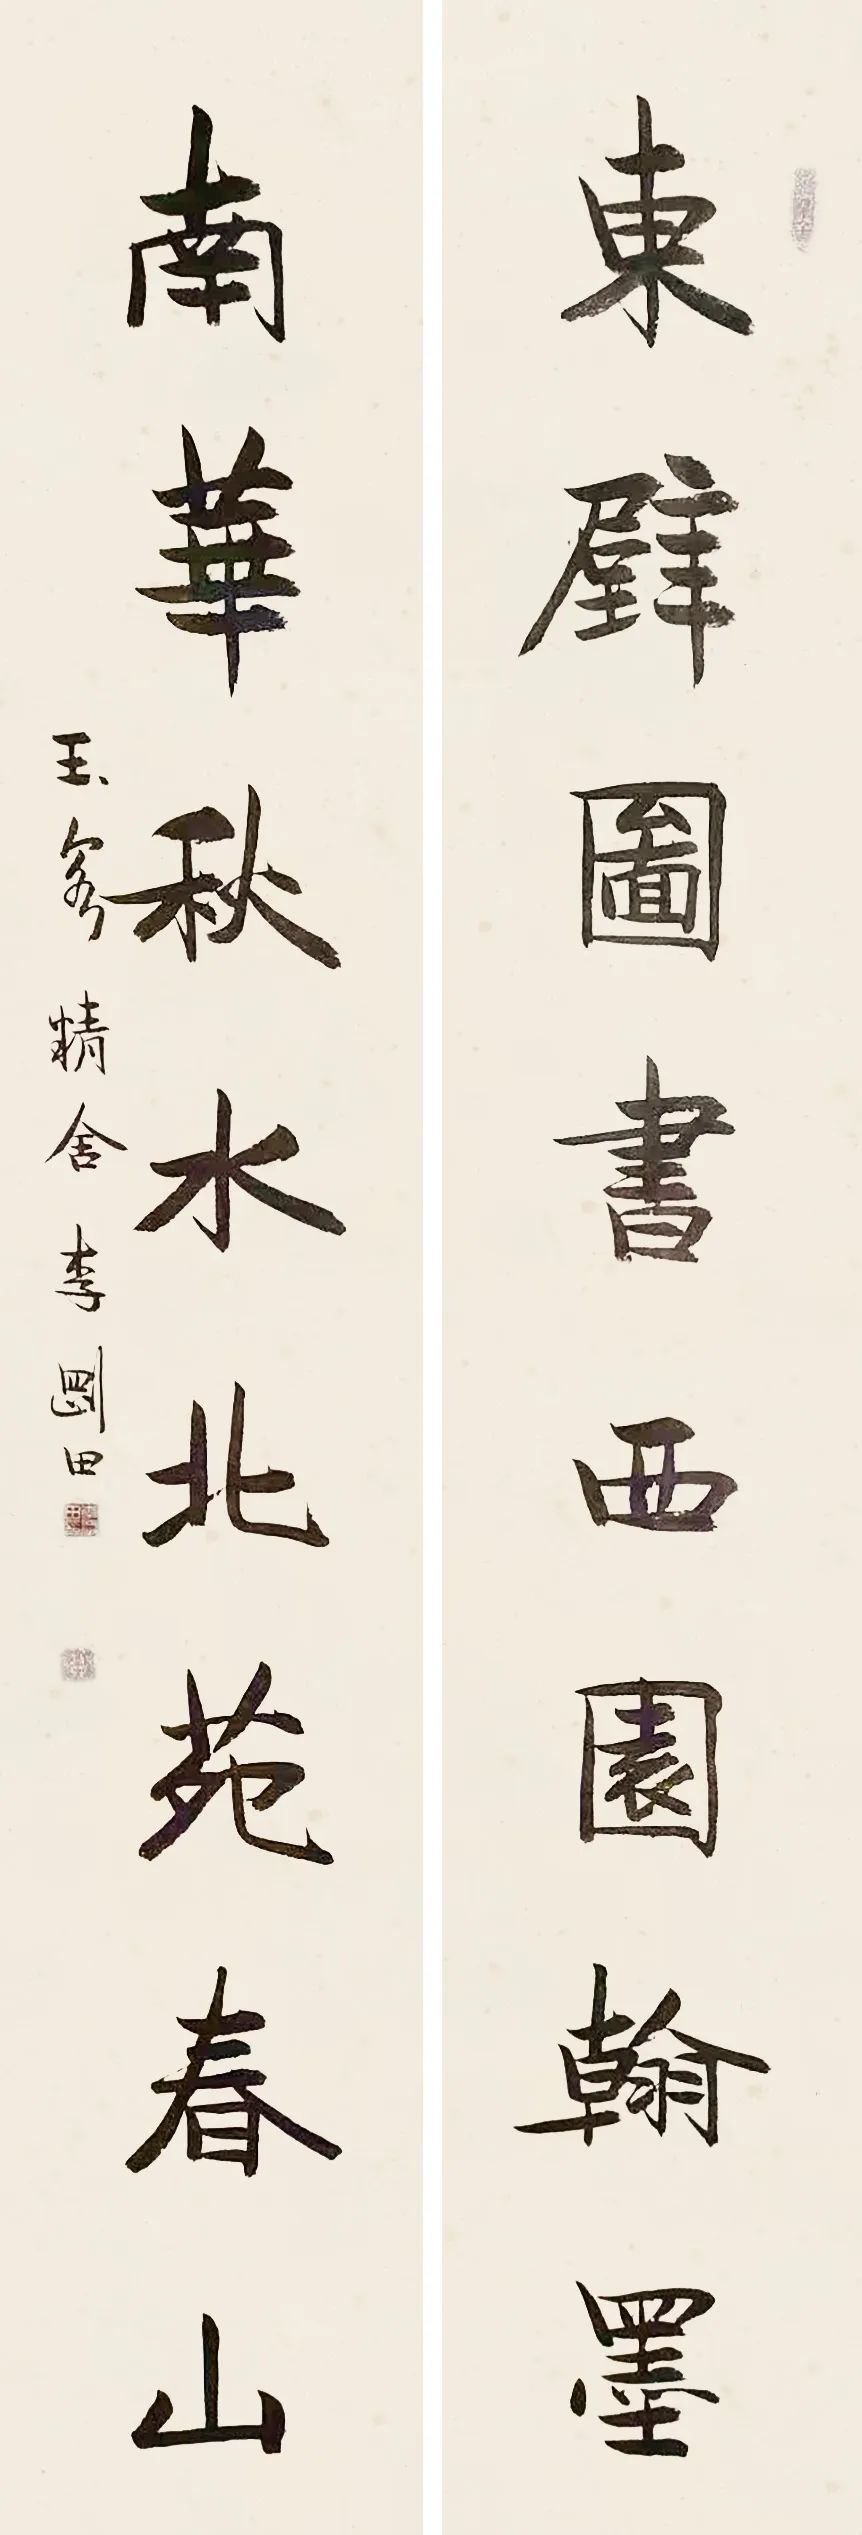 東壁圖書西園翰墨
南華秋水北苑春山
玉 精舍李剛田